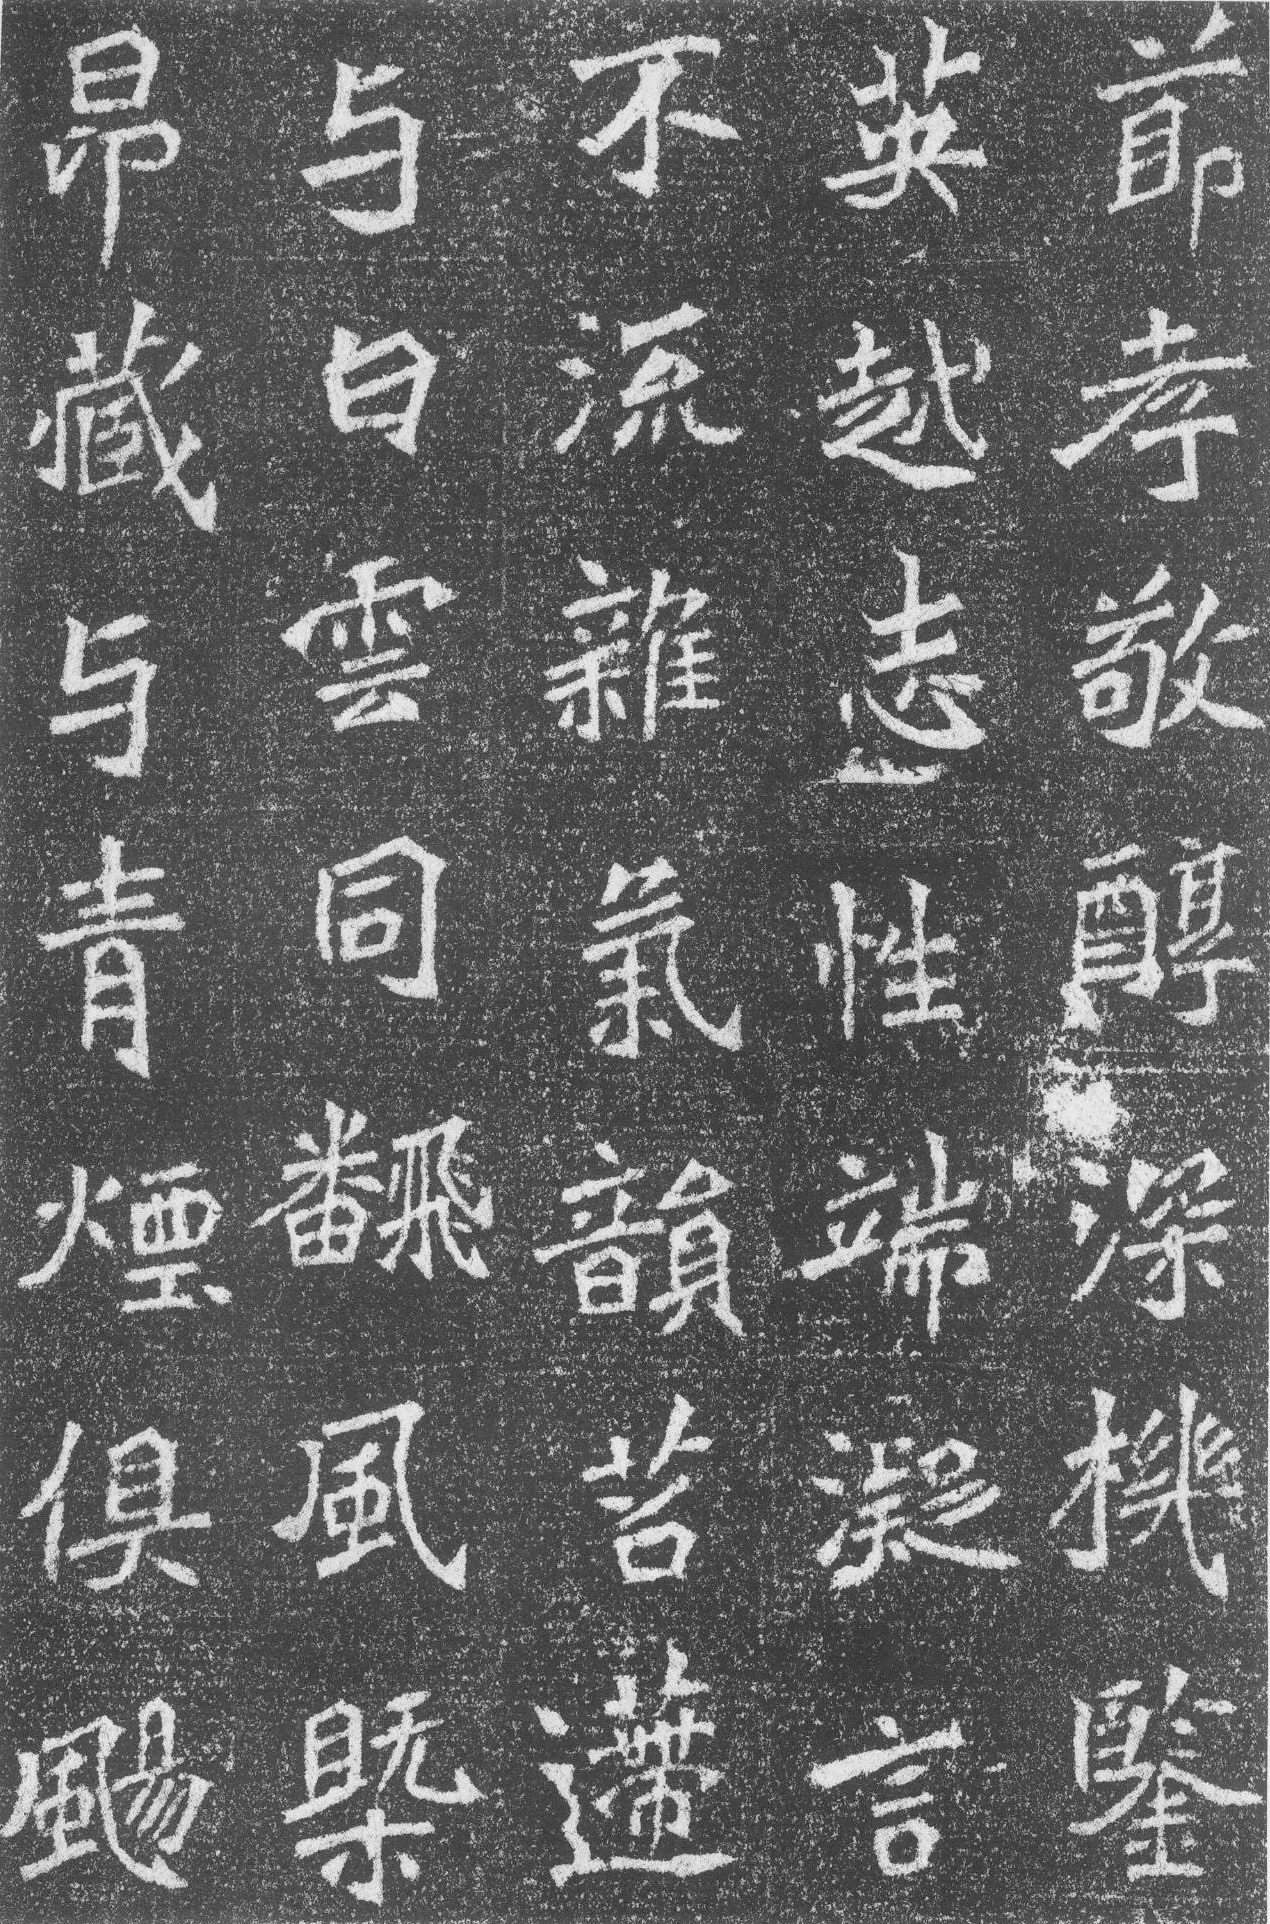 節孝敬醇深機鑒
英越志性端凝言
不流雜氣韻苕遰
与白雲同翻風槩
昂藏与青煙俱颺